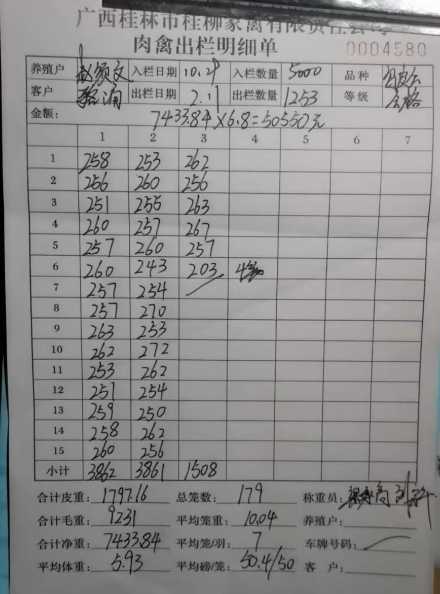 广西桂林市桂柳家禽有限责任公司
肉禽出栏明细单 0004580
养殖户 赵颁文 入栏日期 10.29 入栏数量 5000 品种
客户 出栏日期 2.11 出栏数量 1253 等级 合格
金额: 7433.84×6.8=50550元
1 2 3 4 5 6 7
1 258 253 262
2 256 260 256
3 251 255 263
4 260 257 267
5 257 260 257
6 260 243 203
7 257 254
8 257 270
9 263 253
10 262 272
11 253 262
12 251 254
13 259 250
14 258 262
15 260 256
小计 3862 3861 1508
合计皮重: 1797.16 总笼数: 179 称重员:
合计毛重: 9231 平均笼重: 10.04 养殖户:
合计净重: 7433.84 平均笼/羽: 7 车牌号码:
平均体重: 5.93 平均磅/笼: 50.4/50 客 户: